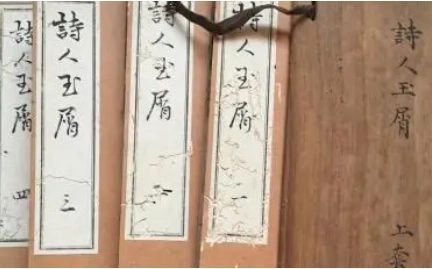 詩人玉屑 上套
詩人玉屑 一
詩人玉屑
詩人玉屑 三
詩人玉屑 四